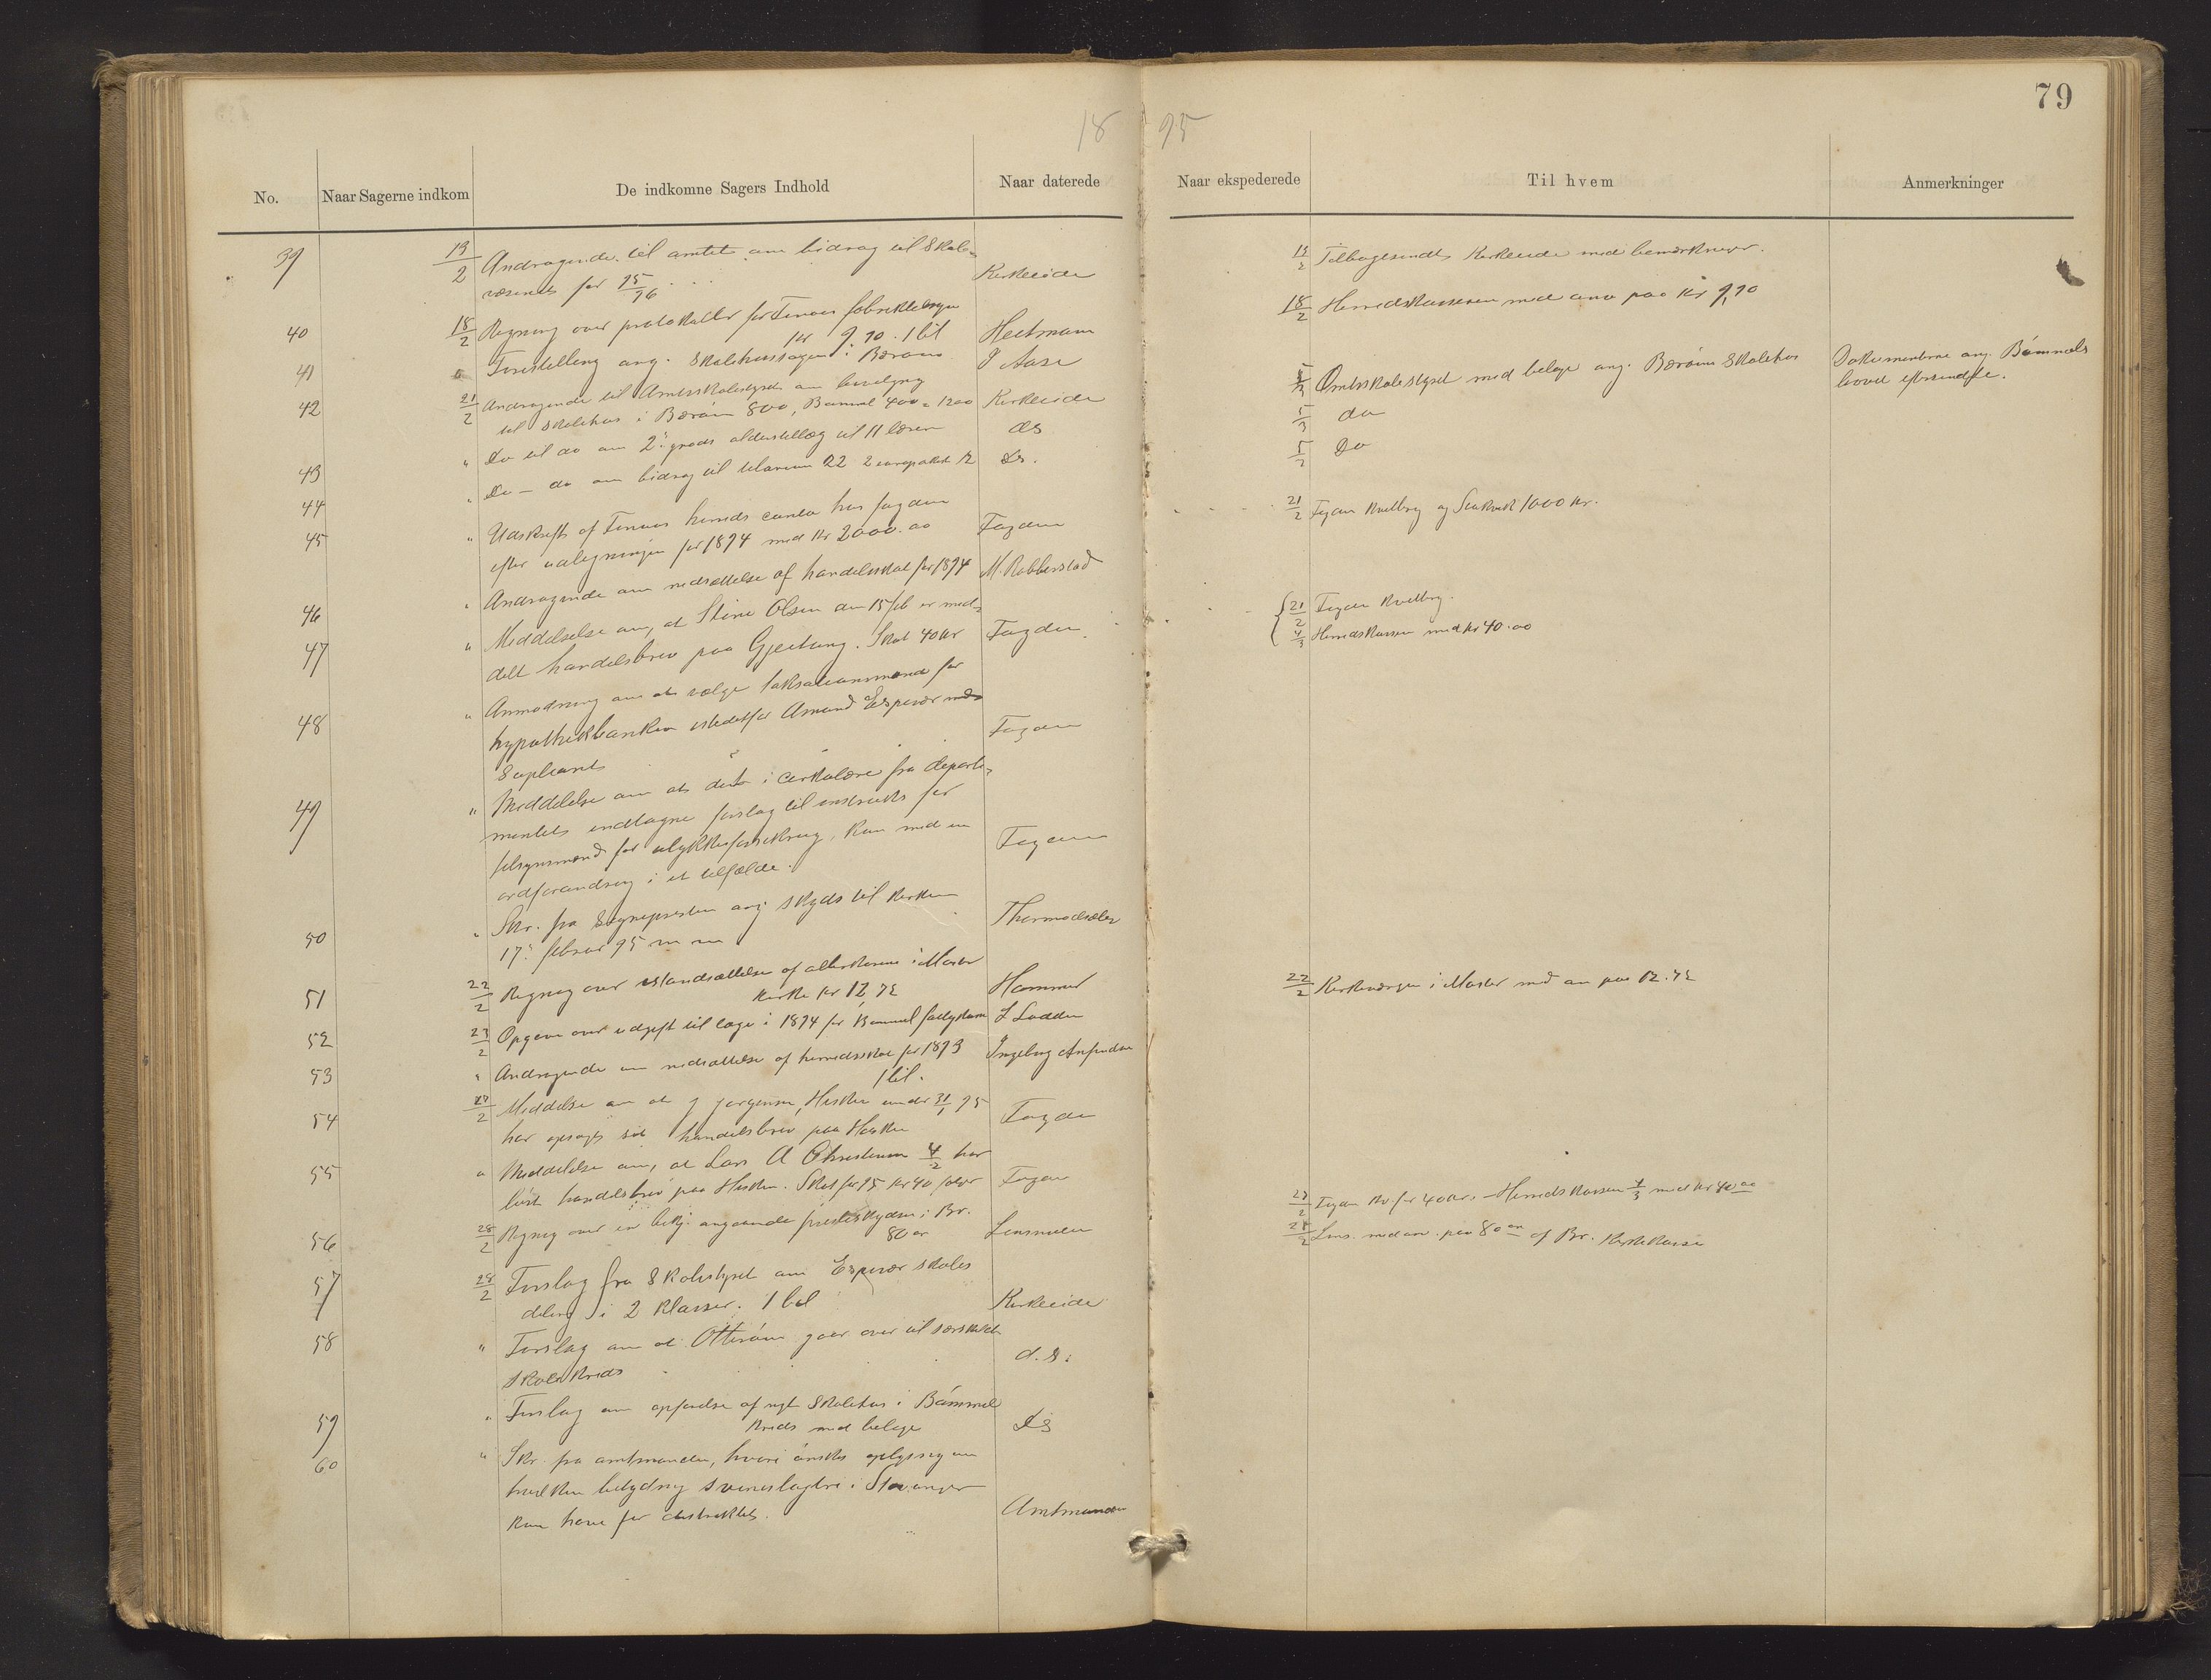 79
18 95
No. Naar Sagerne indkom De indkomne Sagers Indhold Naar daterede Naar ekspederede Til hvem Anmerkninger
39 19/2 Andragende til amtet om bidrag til Skole-
væsenet for 95/96 Kirkeeide
40 18/2 Regning over protokoller for Finaas
kr 9,90. 1 bil
41 Forestilling ang. Skolehussagen i Børøen J Aase
42 21/2 Andragende til Amtsskolestyret om bevilgning
til Skolehus i Børøen 800, Bømmel 400 = 1200 Kirkeeide
" Do til do om 2" grads alderstillæg til 11 lærere ds
43 " Do – do om bidrag til ds.
44 " Udskrift af Finaas herreds conto hos fogden
45 efter udligningen for 1894 med kr 2000.00 Fogden
" Andragende om nedsættelse af handelsskat for 1894 M. Robberstad
46 " Meddelelse om, at Stine Olsen den 15 feb er med-
47 delt handelsbrev paa Gjeitung. Skat 40 kr Fogden
" Anmodning om at vælge taksationsmænd for
48 hypothekbanken istedetfor Amund Espevær med
Supleant Fogden
" Meddelelse om at det i cirkulære fra departe-
49 mentet indtagne forslag til instruks for
tilsynsmænd for ulykkesforsikring, kun med en
ordforandring i et tilfælde. Fogden
50 " Skr. fra Sognepresten ang skyds til kirken
17" februar 95 m m
51 22/2 Regning over istandsættelse af i Moster
kirke kr 12.72 Hammer
52 23/2 Opgave over udgift til læge i 1894 for Bømmel L Lodden
53 " Andragende om nedsættelse af herredsskat for 1893 Ingeborg
1 bil.
54 27/2 Meddelelse om at J Jørgensen, Hisken under 31/1 95
har opsagt sit handelsbrev paa Hisken Fogden
55 " Meddelelse om, at Lars A Christensen 4/2 har
løst handelsbrev paa Hisken. Skat for 95 kr 40 Fogden
56 28/2 Regning over en bekj. angaaende presteskydsen i Br.
80 ør Lensmanden
57 28/2 Forslag fra Skolestyret om Espevær skoles
deling i 2 klasser. 1 bil Kirkeeide
58 " Forslag om at Otterøen gaar over til særskildt
skolekreds d.s.
59 " Forslag om opførelse af nyt Skolehus i Bømmel
kreds med bilage Ds
60 " Skr. fra amtmanden, hvori ønskes oplysning om
hvilken betydning svineslagteri i Stavanger
kan have for distriktet. Amtmanden
19/2 Tilbagesendt Kirkeeide med bemærkninger.
18/2 Herredskasseren med anv paa kr 9,90
5/3 Amtsskolestyret med bilage ang. Børøens Skolehus Dokumenterne ang. Bømmels
5/3 do
5/3 Do
21/2 Fogden Kvittering 1000 kr.
21/2 Fogden Kvittering.
4/3 Herredskassen med kr 40.00
22/2 Kirkeværgen i Moster med an paa 12.72
27/2 Fogden kv for 40 kr. – Herredskassen 4/3 med kr 40.00
28/2 Lens. med anv. paa 80 øre af Br. Kirkekasse